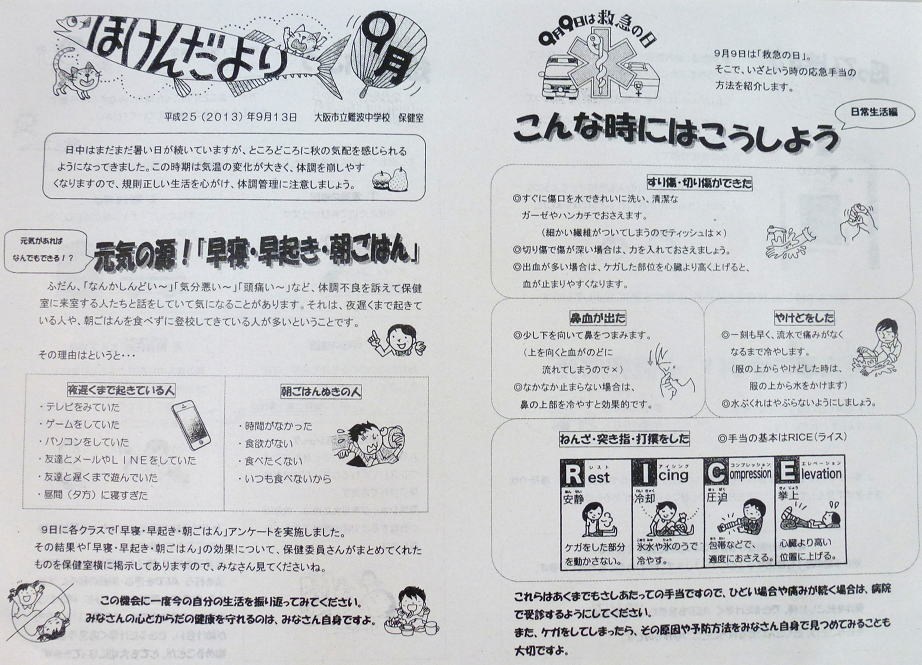 ほけんだより
9月
平成25(2013)年9月13日 大阪市立難波中学校 保健室
日中はまだまだ暑い日が続いていますが、ところどころに秋の気配を感じられる
ようになってきました。この時期は気温の変化が大きく、体調を崩しやす
くなりますので、規則正しい生活を心がけ、体調管理に注意しましょう。
元気があれば
なんでもできる!?
元気の源!「早寝・早起き・朝ごはん」
ふだん、「なんかしんどい~」「気分悪い~」「頭痛い~」など、体調不良を訴えて保健
室に来室する人たちと話をしていて気になることがあります。それは、夜遅くまで起きて
いる人や、朝ごはんを食べずに登校してきている人が多いということです。
その理由はというと・・・
夜遅くまで起きている人
・テレビをみていた
・ゲームをしていた
・パソコンをしていた
・友達とメールやLINEをしていた
・友達と遅くまで遊んでいた
・昼間(夕方)に寝すぎた
朝ごはんぬきの人
・時間がなかった
・食欲がない
・食べたくない
・いつも食べないから
9日に各クラスで「早寝・早起き・朝ごはん」アンケートを実施しました。
その結果や「早寝・早起き・朝ごはん」の効果について、保健委員さんがまとめてくれた
ものを保健室横に掲示してありますので、みなさん見てくださいね。
この機会に一度今の自分の生活を振り返ってみてください。
みなさんの心とからだの健康を守れるのは、みなさん自身ですよ。
9月9日は救急の日
9月9日は「救急の日」。
そこで、いざという時の応急手当の
方法を紹介します。
日常生活編
こんな時にはこうしよう
すり傷・切り傷ができた
◎すぐに傷口を水できれいに洗い、清潔な
ガーゼやハンカチでおさえます。
(細かい繊維がついてしまうのでティッシュは×)
◎切り傷で傷が深い場合は、力を入れておさえましょう。
◎出血が多い場合は、ケガした部位を心臓より高く上げると、
血が止まりやすくなります。
鼻血が出た
◎少し下を向いて鼻をつまみます。
(上を向くと血がのどに
流れてしまうので×)
◎なかなか止まらない場合は、
鼻の上部を冷やすと効果的です。
やけどをした
◎一刻も早く、流水で痛みがなく
なるまで冷やします。
(服の上からやけどした時は、
服の上から水をかけます)
◎水ぶくれはやぶらないようにしましょう。
ねんざ・突き指・打撲をした
◎手当の基本はRICE(ライス)
レスト
Rest
あんせい
安静
ケガをした部分
を動かさない。
アイシング
Icing
れいきゃく
冷却
氷水や氷のうで
冷やす。
コンプレッション
Compression
あっぱく
圧迫
包帯などで、
適度におさえる。
エレベーション
Elevation
きょじょう
挙上
心臓より高い
位置に上げる。
これらはあくまでもさしあたっての手当ですので、ひどい場合や痛みが続く場合は、病院
で受診するようにしてください。
また、ケガをしてしまったら、その原因や予防方法をみなさん自身で見つめてみることも
大切ですよ。